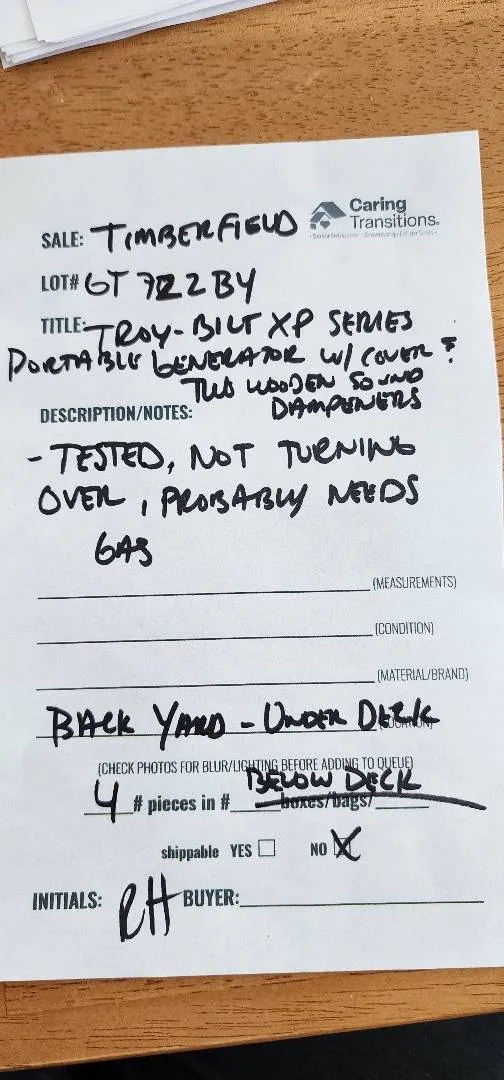 Caring
Transitions®
SALE: TIMBERFIELD
LOT# GT 722BY
TITLE: TROY-BILT XP SERIES
PORTABLE GENERATOR W/ COVER &
TWO WOODEN SOUND
DAMPENERS
DESCRIPTION/NOTES:
- TESTED, NOT TURNING
OVER, PROBABLY NEEDS
GAS
(MEASUREMENTS)
(CONDITION)
(MATERIAL/BRAND)
BACK YARD - UNDER DECK
(LOCATION)
(CHECK PHOTOS FOR BLUR/LIGHTING BEFORE ADDING TO QUEUE)
BELOW DECK
4 # pieces in # boxes/bags/
shippable YES NO X
INITIALS: RH BUYER: